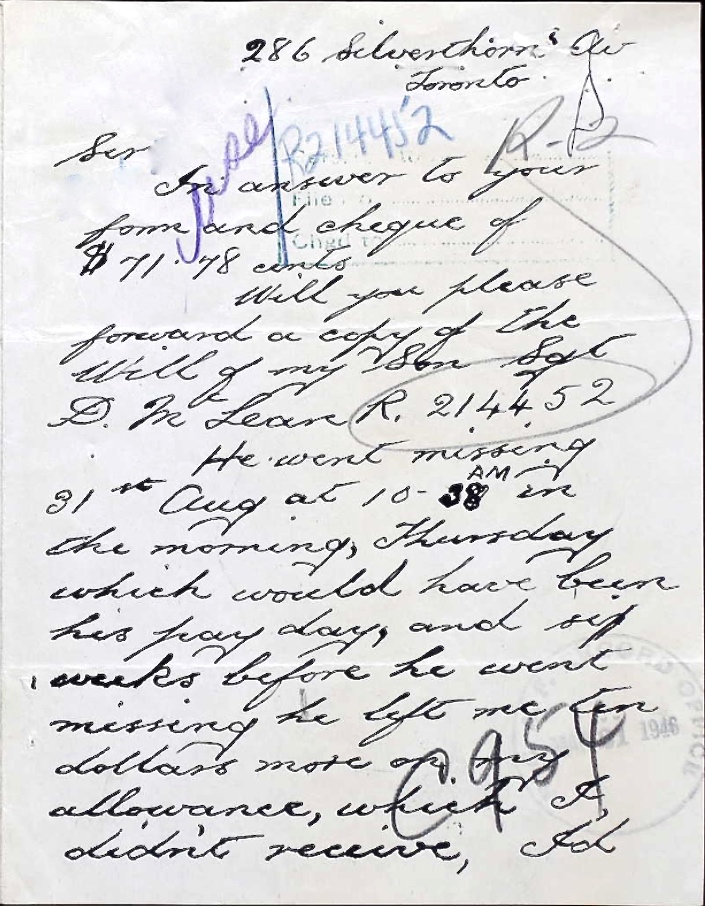 286 Silverthorn's Av
Toronto
R214452
R-2
Sir
In answer to your
File No.
form and cheque of
Chgd to
$71.78 cents
Will you please
forward a copy of the
Will of my Son Sgt
D. McLean R. 214452
He went missing
31st Aug at 10-38 AM in
the morning, Thursday
which would have been
his pay day, and six
weeks before he went
missing he left me ten
1946
dollars more on my
C954
allowance, which I
didn't receive, Id